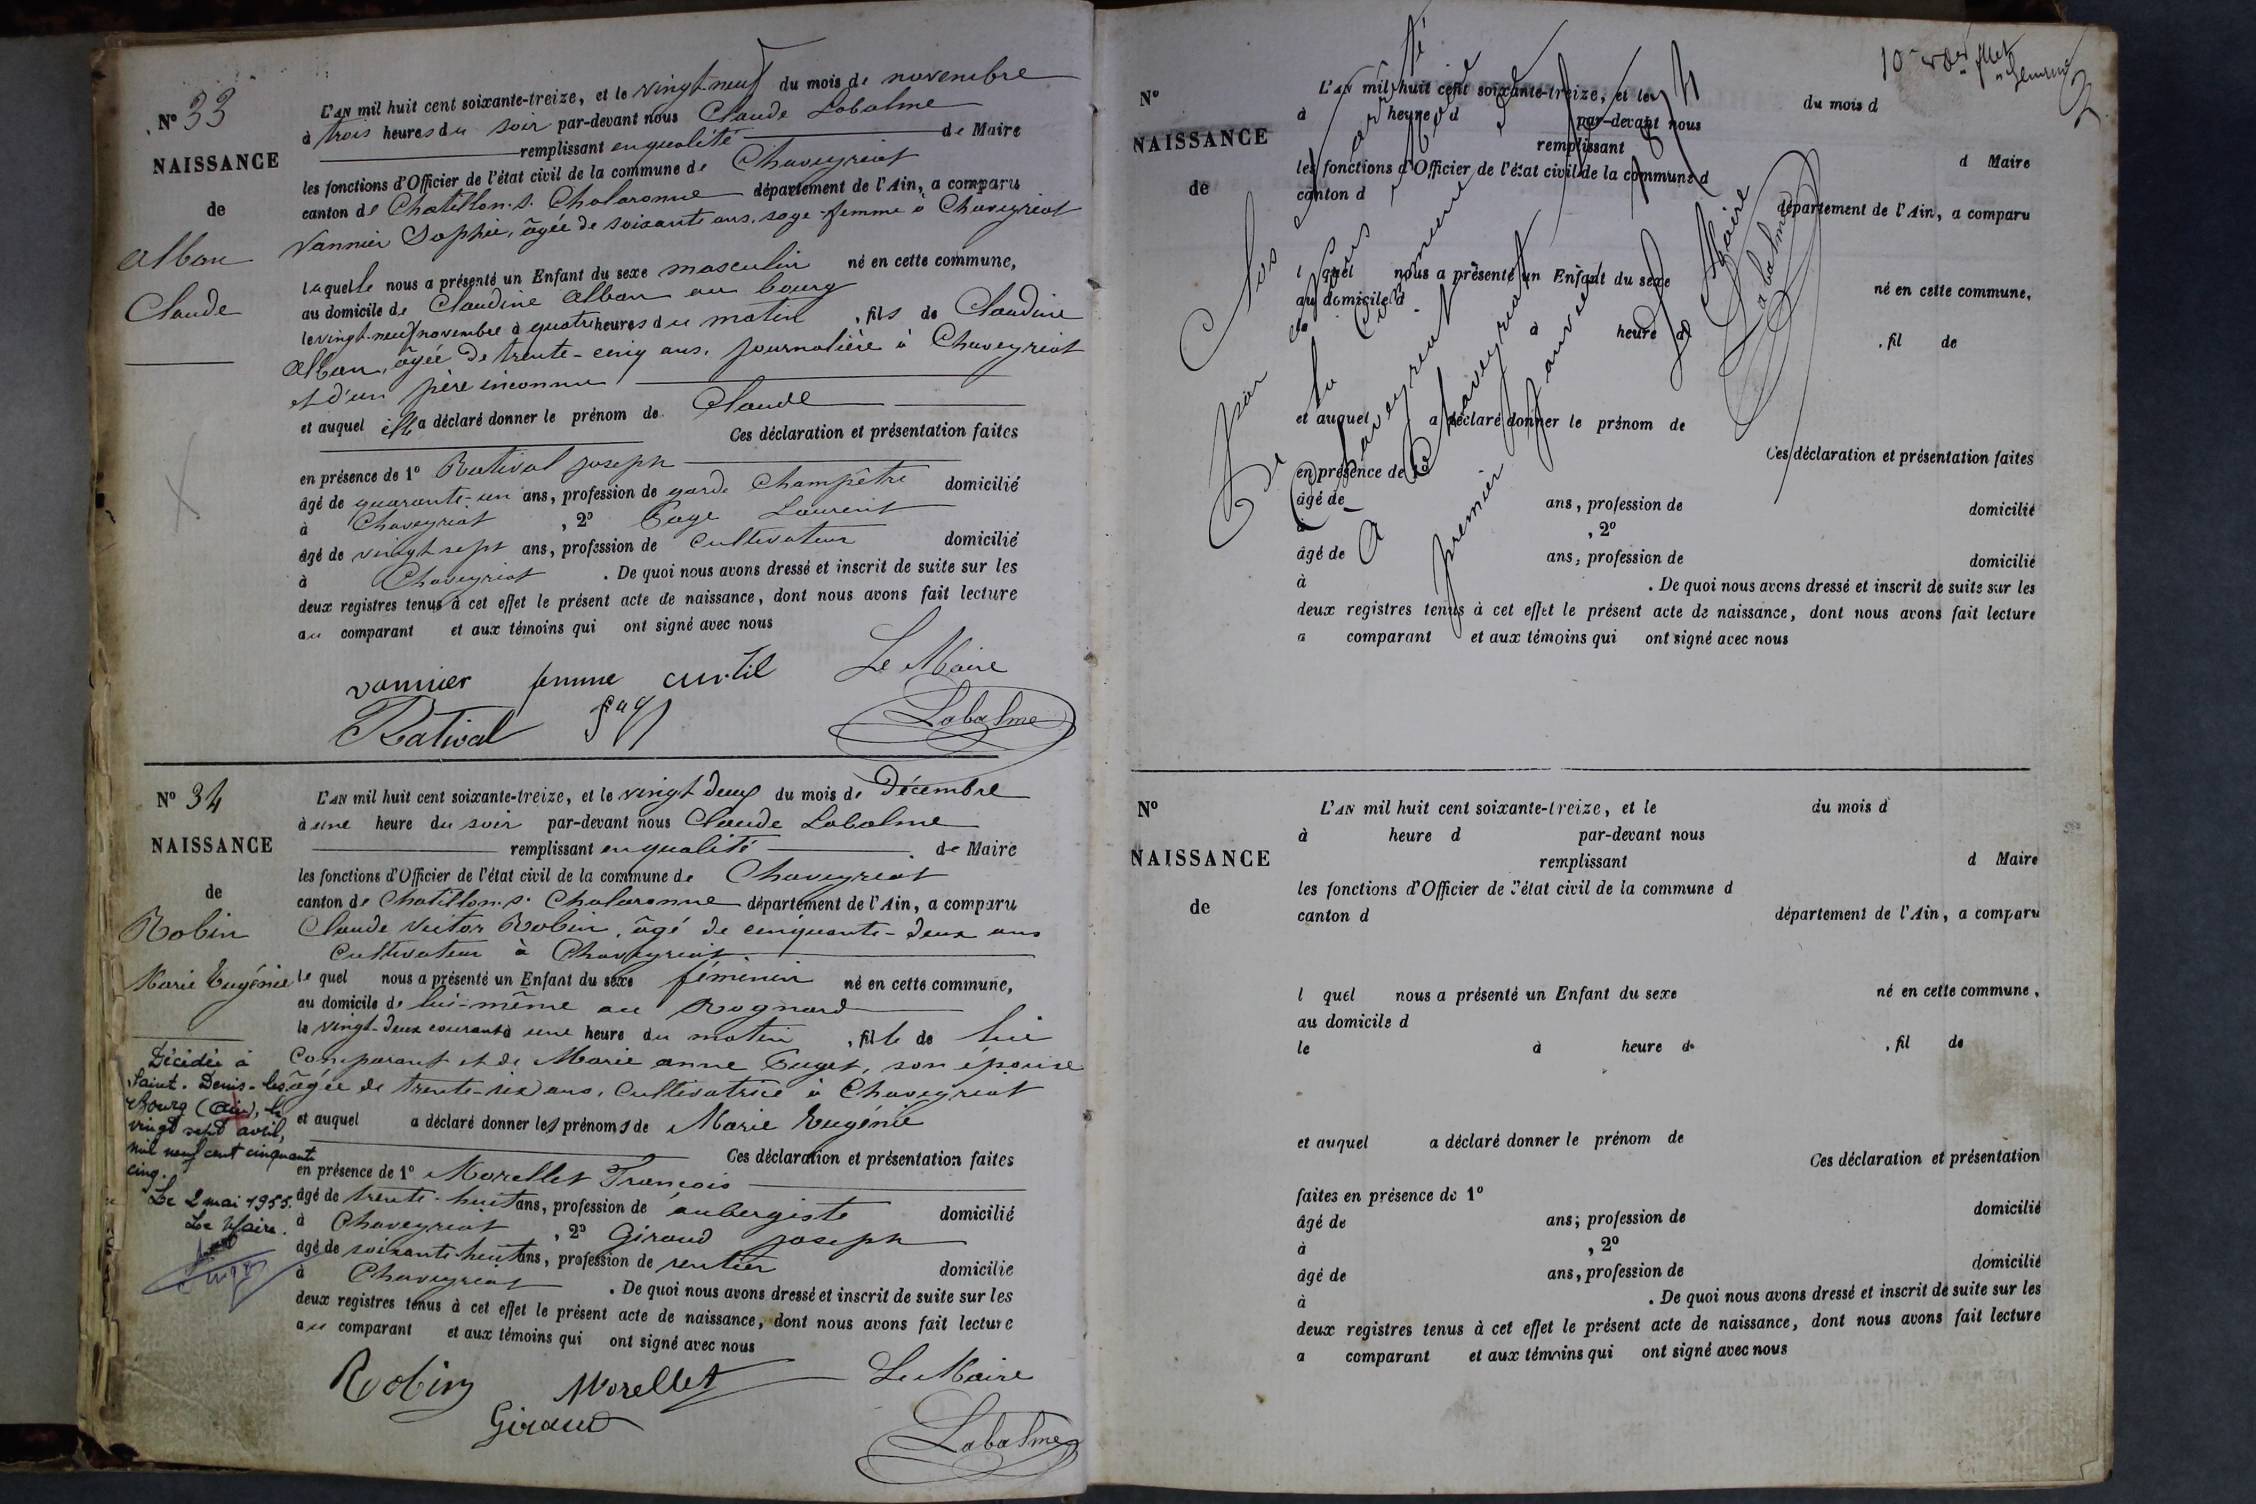 N° 33
NAISSANCE
de
Alban
Claude
L'AN mil huit cent soixante-treize, et le vingt-neuf du mois de novembre
à trois heures du soir par-devant nous Claude Labalme
remplissant en qualité de Maire
les fonctions d'Officier de l'état civil de la commune de Chaveyriat
canton de Chatillon-s-Chalaronne département de l'Ain, a comparu
Vannier Sophie, âgée de soixante ans, sage-femme à Chaveyriat
laquelle nous a présenté un Enfant du sexe masculin né en cette commune,
au domicile de Claudine Alban au bourg
le vingt-neuf novembre à quatre heures du matin, fils de Claudine
Alban, âgée de trente-cinq ans, journalière à Chaveyriat
et d'un père inconnu
et auquel elle a déclaré donner le prénom de Claude
Ces déclaration et présentation faites
en présence de 1° Rativat Joseph
âgé de quarante-un ans, profession de garde champêtre domicilié
à Chaveyriat, 2° Page Laurent
âgé de vingt sept ans, profession de cultivateur domicilié
à Chaveyriat. De quoi nous avons dressé et inscrit de suite sur les
deux registres tenus à cet effet le présent acte de naissance, dont nous avons fait lecture
au comparant et aux témoins qui ont signé avec nous
vannier femme curtil Le Maire
Rativat page Labalme
N° 34
NAISSANCE
de
Robin
Marie Eugénie
L'AN mil huit cent soixante-treize, et le vingt deux du mois de Décembre
à une heure du soir par-devant nous Claude Labalme
remplissant en qualité de Maire
les fonctions d'Officier de l'état civil de la commune de Chaveyriat
canton de Chatillon-s-Chalaronne département de l'Ain, a comparu
Claude Victor Robin, âgé de cinquante-deux ans
cultivateur à Chaveyriat
le quel nous a présenté un Enfant du sexe féminin né en cette commune,
au domicile de lui-même au Rognard
le vingt-deux courant à une heure du matin, fille de lui
comparant et de Marie anne Puget, son épouse
âgée de trente-six ans, cultivatrice à Chaveyriat
et auquel a déclaré donner les prénoms de Marie Eugénie
Ces déclaration et présentation faites
en présence de 1° Morellet François
âgé de trente-huit ans, profession de aubergiste domicilié
à Chaveyriat, 2° Giraud Joseph
âgé de soixante-huit ans, profession de rentier domicilié
à Chaveyriat. De quoi nous avons dressé et inscrit de suite sur les
deux registres tenus à cet effet le présent acte de naissance, dont nous avons fait lecture
au comparant et aux témoins qui ont signé avec nous
Robin Morellet Le Maire
Giraud Labalme
Décédée à
Saint-Denis-les
Bourg (Ain), le
vingt sept avril,
mil neuf cent cinquante
cinq.
Le 2 mai 1955.
Le Maire.
N°
NAISSANCE
de
L'AN mil huit cent soixante-treize, et le du mois d
à heure d par-devant nous
remplissant d Maire
les fonctions d'Officier de l'état civil de la commune d
canton d département de l'Ain, a comparu
l quel nous a présenté un Enfant du sexe né en cette commune,
au domicile d
le à heure d , fil de
et auquel a déclaré donner le prénom de
Ces déclaration et présentation faites
en présence de
âgé de ans, profession de domicilié
à , 2°
âgé de ans, profession de domicilié
à . De quoi nous avons dressé et inscrit de suite sur les
deux registres tenus à cet effet le présent acte de naissance, dont nous avons fait lecture
a comparant et aux témoins qui ont signé avec nous
Clos et arrêté
par Nous Maire
de la Commune de
Chaveyriat
A Chaveyriat le
premier janvier 1874
Le Maire
Labalme
N°
NAISSANCE
de
L'AN mil huit cent soixante-treize, et le du mois d
à heure d par-devant nous
remplissant d Maire
les fonctions d'Officier de l'état civil de la commune d
canton d département de l'Ain, a comparu
l quel nous a présenté un Enfant du sexe né en cette commune,
au domicile d
le à heure d , fil de
et auquel a déclaré donner le prénom de
Ces déclaration et présentation
faites en présence de 1°
âgé de ans; profession de domicilié
à , 2°
âgé de ans, profession de domicilié
à . De quoi nous avons dressé et inscrit de suite sur les
deux registres tenus à cet effet le présent acte de naissance, dont nous avons fait lecture
a comparant et aux témoins qui ont signé avec nous